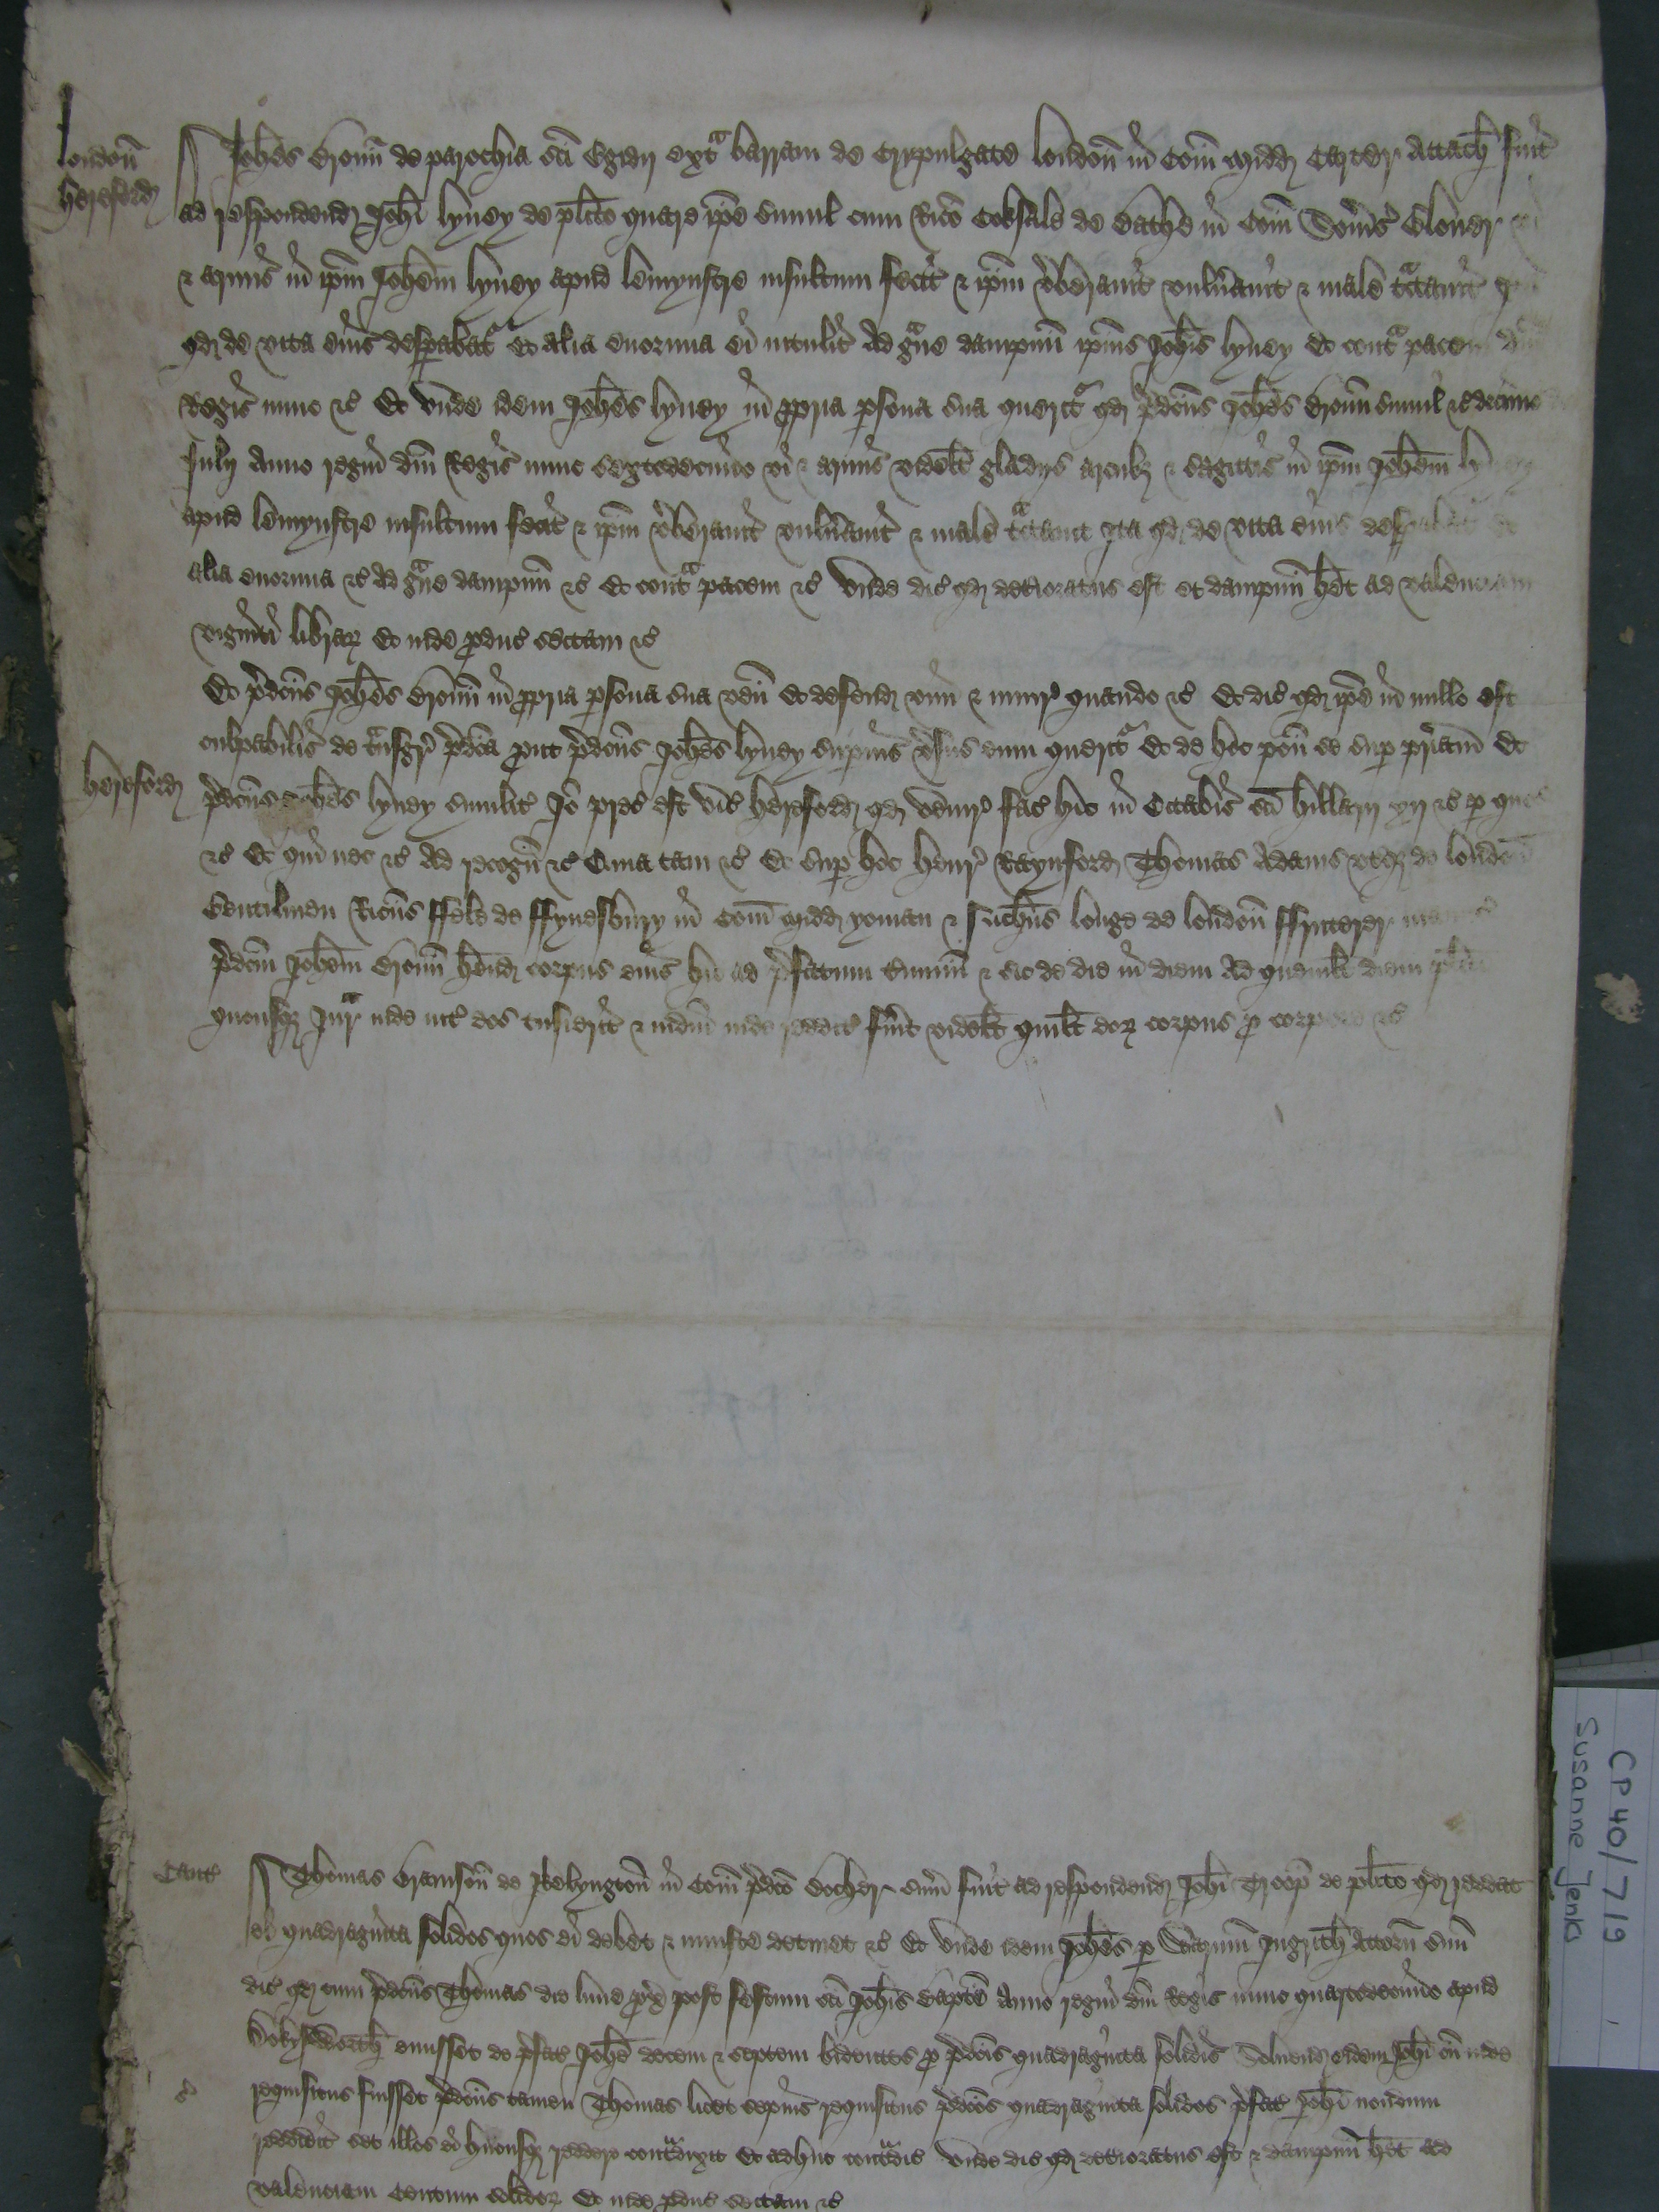 londoñ
herefordȝ
Joh̄es Broun̄ de parochia sc̄i Egidij ext^a barram de Crepulgate londoñ in Com̄ Midd̄ Carter Attach̄ fuit
ad respondendȝ Joh̄i lyney de pl̄ito quare ip̄e simul cum Ric̄o Coksale de Bathe in Com̄ Som̄s
& armis in ip̄m Joh̄em lyney apud lemynstre insultum fecit & ip̄m v̄beravit vuln̄avit & male t^actavit
qđ de vita eius desp̄abat^r Et alia enormia ei intulit Ad g^ave dampnū ip̄ius Joh̄is lyney Et cont^a pacem
Regis nunc &c̄ Et vnde idem Joh̄es lyney in ꝓpria ꝑsona sua querit^r qđ p̄dc̄us Joh̄es Broun̄ simul &c̄ decimo
Julij Anno regni dn̄i Regis nunc sextodecimo vi & armis videlt̄ gladijs arcubȝ & sagittis in ip̄m Joh̄em
apud lemynstre insultum fecit & ip̄m v̄beravit vuln̄avit & male t^actavit ita qđ de vita eius
alia enormia &c̄ Ad g^ave dampnū &c̄ Et cont^a pacem &c̄ Vnde dic̄ qđ deterioratus est et dampnū h̄et ad valenciam
viginti librarꝝ Et inde ꝓduc̄ sectam &c̄
Et p̄dc̄us Joh̄es Broun̄ in ꝓpria ꝑsona sua ven̄ Et defendȝ vim & iniur̄ quando &c̄ Et dic̄ qđ ip̄e in nullo est
culpabilis de t^ansgr̄ p̄dc̄a ꝓut p̄dc̄us Joh̄es lyney sup̄ius v̄sus eum querit^r Et de hoc pon̄ se sup̄ pr̄iam Et
herefordȝ
p̄dc̄us Joh̄es lyney similit̄ Jo p̄c̄ est vic̄ herefordȝ qđ venir̄ fac̄ hic in Octabis sc̄i hillarij xij &c̄ ꝑ
&c̄ Et qui nec &c̄ Ad recogn̄ &c̄ Quia tam &c̄ Et sup̄ hoc henr̄ Raynfordȝ Thomas Adams
Gentilmen Ric̄us ffeld de ffynesbury in Com̄ Midd̄ yoman & longe de londoñ
p̄dc̄m Joh̄em Broun̄ h̄endȝ corpus eius hic ad p̄fatum t̄minū & sic de die in diem Ad quemlt̄ diem
quousqȝ Jur^a inde int̄ eos & iudm̄ inde reddit̄ fūit videlt̄ quilt̄ eorꝝ corpus ꝓ corpore &c̄
Cant̄
Thomas de Jkelyngton̄ in Com̄ p̄dc̄o Bocher sum̄ fuit ad respondendȝ Joh̄i de pl̄ito qđ reddat
ei quadraginta solidos quos ei debet & iniuste detinet &c̄ Et vnde idem Joh̄es ꝑ Attorn̄ suū
dic̄ qđ cum p̄dc̄us Thomas die lune ꝓx̄ post festum sc̄i Joh̄is Bapt̄e Anno regni dn̄i Regis nunc quartodecimo apud
emisset de p̄fat̄ Joh̄e decem & septem bidentes ꝓ p̄dc̄is quadraginta solidis Solvendȝ eidem Joh̄i cū inde
requisitus fuisset p̄dc̄us tamen Thomas licet sepius requisitus p̄dc̄os quadraginta solidos p̄fat̄ Joh̄i nondum
reddidit set illos ei hucusqȝ reddere cont^adixit Et adhuc cont^adic̄ Vnde dic̄ qđ deterioratus est & dampnū h̄et ad
valenciam Centum solidorꝝ Et inde ꝓduc̄ sectam &c̄
CP 40/719
Susanne Jenks